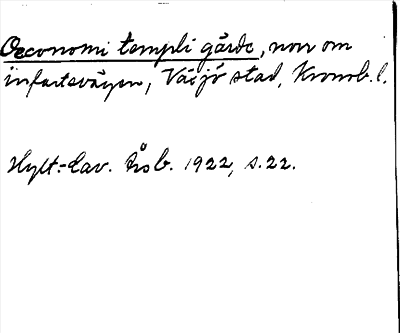 Oeconomi templi gärde, norr om
infartsvägen, Växjö stad, Kronob. l.
Hylt.-Cav. Årsb. 1922, s. 22.